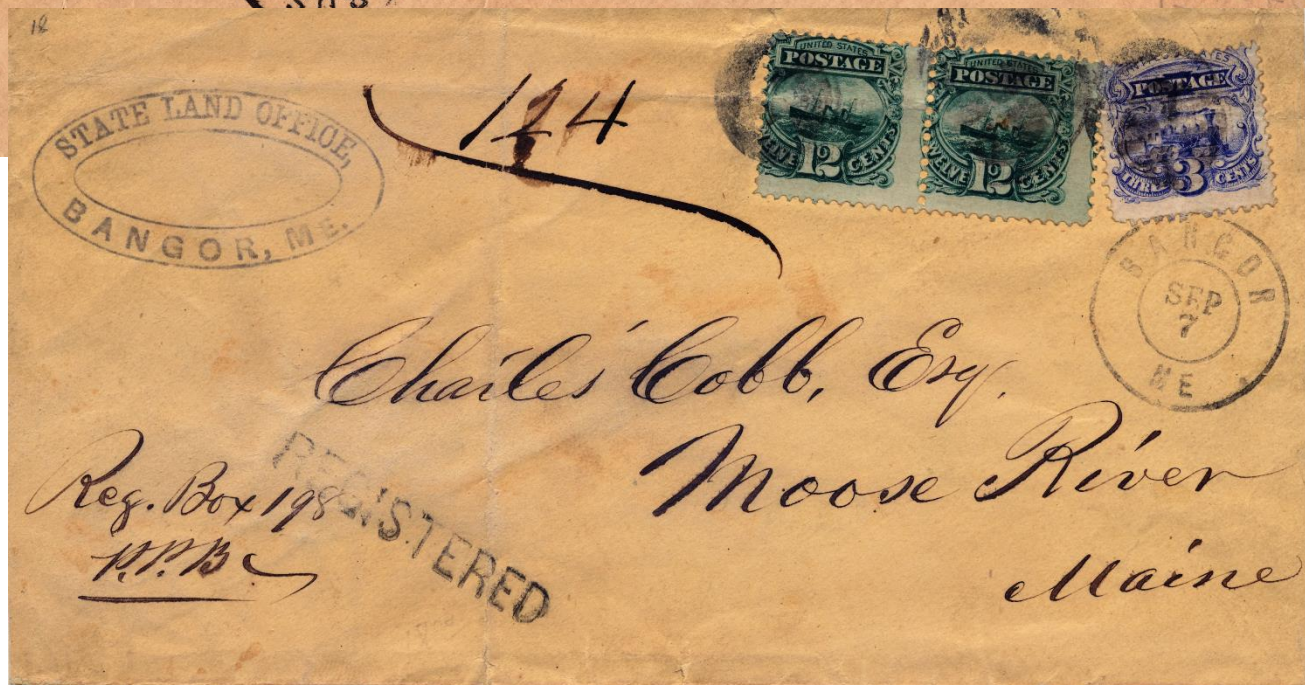 18
STATE LAND OFFICE,
BANGOR, ME.
124
UNITED STATES
POSTAGE
12 CENTS
UNITED STATES
POSTAGE
12 CENTS
POSTAGE
THREE 3 CENTS
BANGOR
SEP
7
ME
Charles Cobb, Esq.
Moose River
Maine
Reg. Box 198
P.P.B
REGISTERED